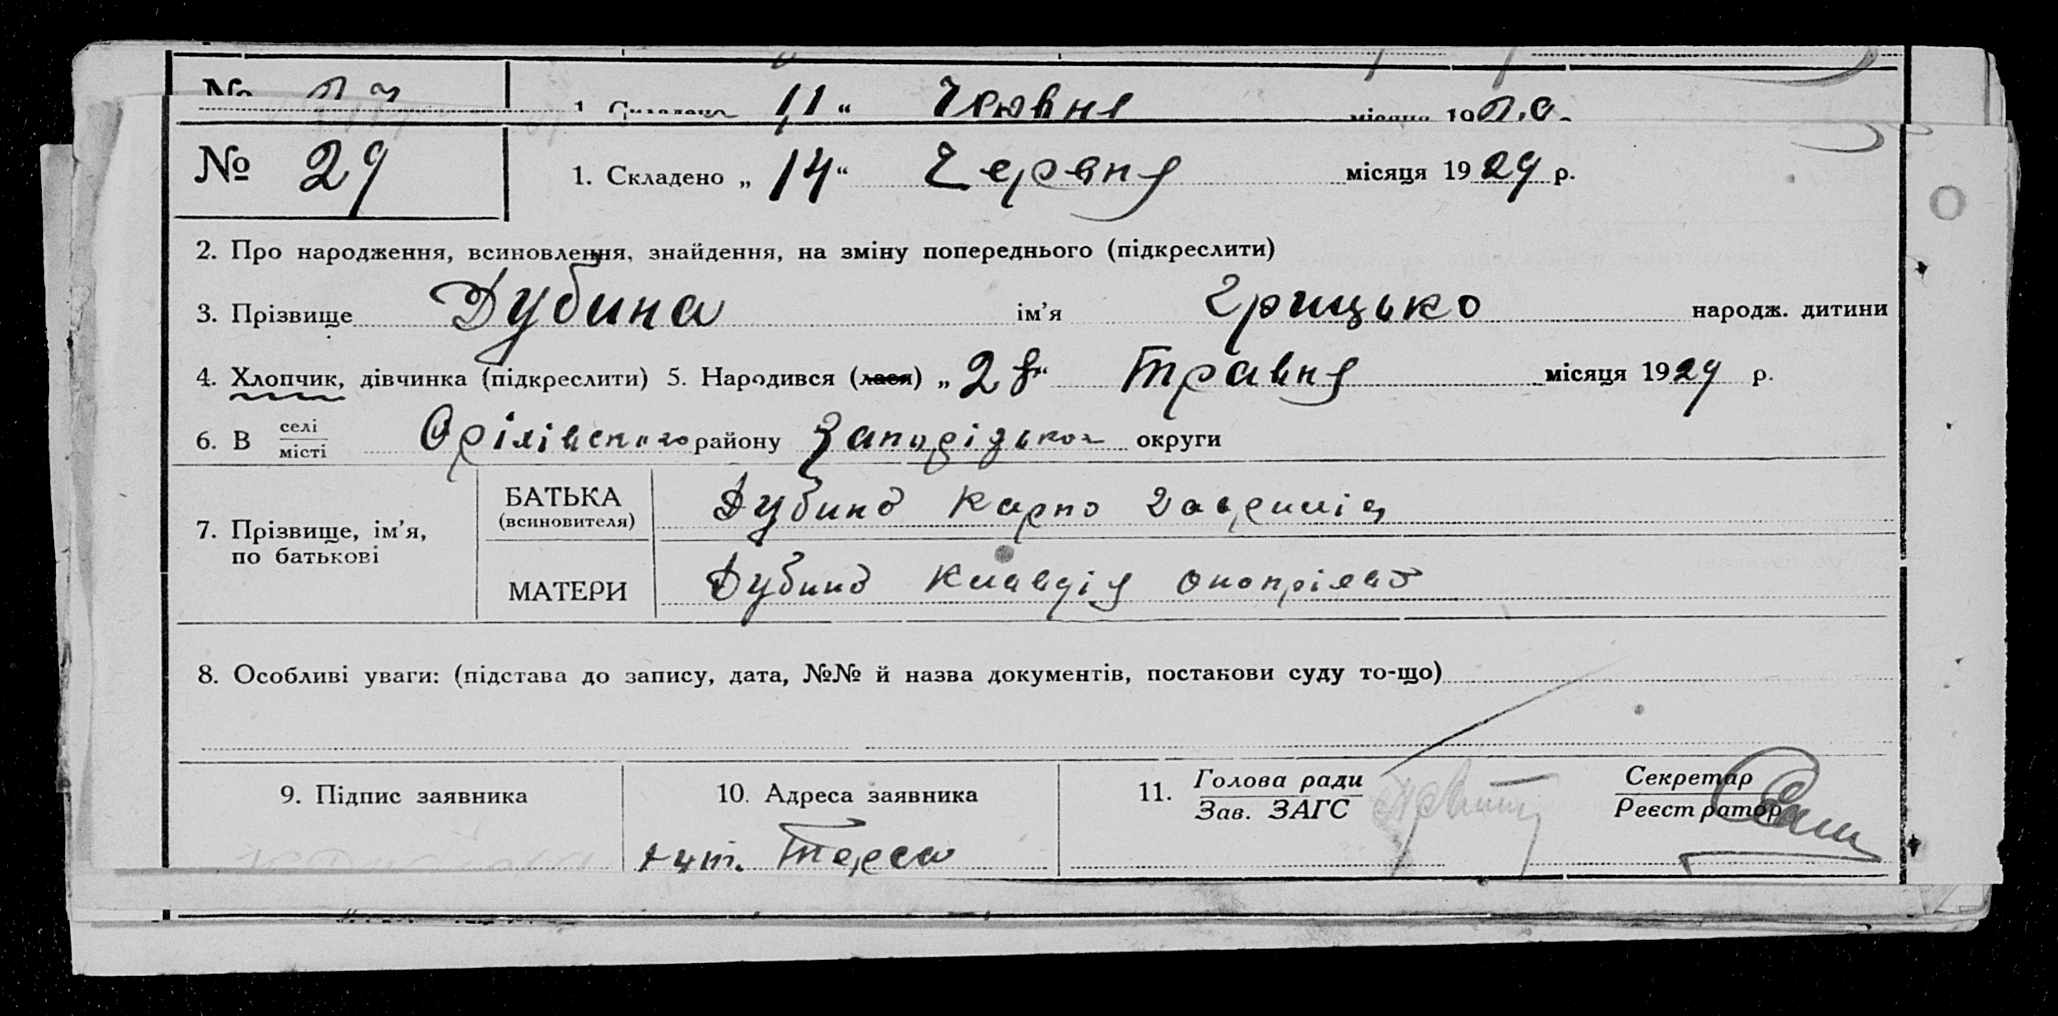 № 27 1. Складено „11“ Червня місяця 1929
№ 29 1. Складено „14“ Червня місяця 1929 р.
2. Про народження, всиновлення, знайдення, на зміну попереднього (підкреслити)
3. Прізвище Дубина ім’я Грицько народж. дитини
4. Хлопчик, дівчинка (підкреслити) 5. Народився (лася) „28“ Травня місяця 1929 р.
6. В селі/місті Орілівського району Запорізької округи
БАТЬКА (всиновителя) Дубина Карпо
7. Прізвище, ім’я, по батькові
МАТЕРИ Дубина Клавдія
8. Особливі уваги: (підстава до запису, дата, №№ й назва документів, постакови суду то-що)
9. Підпис заявника 10. Адреса заявника 11. Голова ради/Зав. ЗАГС Секретар/Реєстратор
хут. Терса